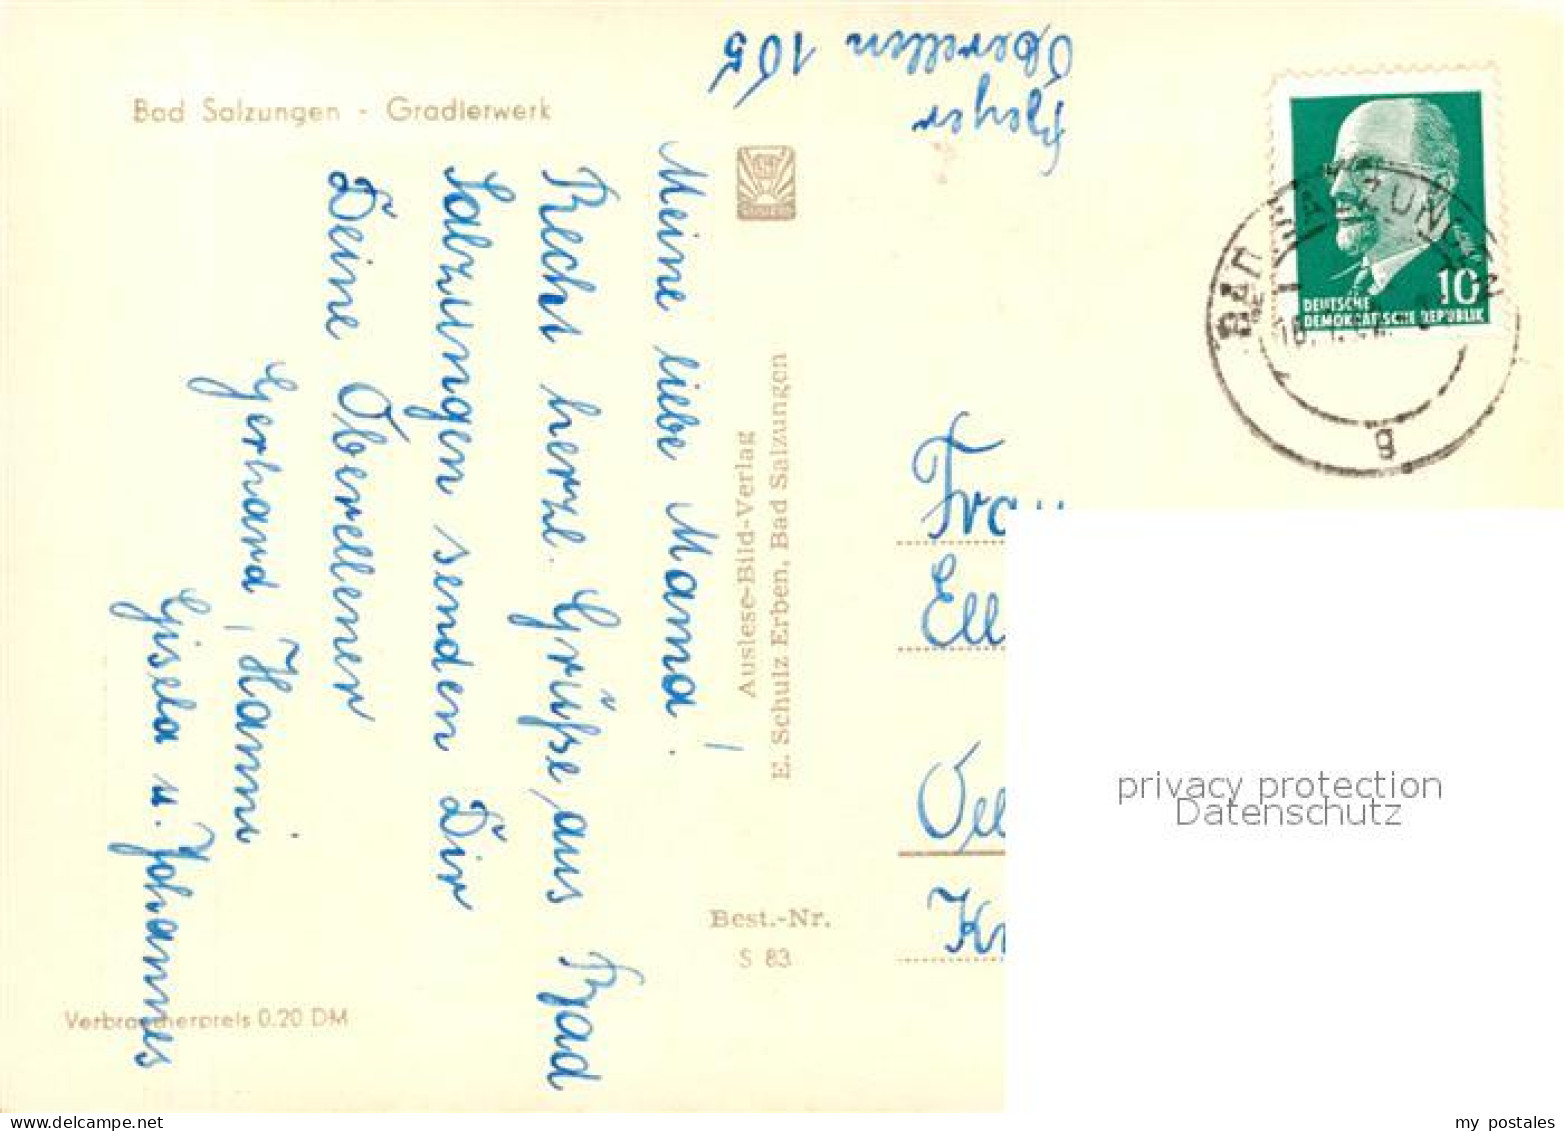 Bad Salzungen - Gradierwerk
Meine liebe Mama!
Recht herzl. Grüße, aus Bad
Salzungen senden Dir
Deine Oberellener
Gerhard, Hanni
Gisela u. Johannes
Verbraucherpreis 0.20 DM
Auslese-Bild-Verlag
E. Schulz Erben, Bad Salzungen
Best.-Nr.
S 83
Oberellen 105
10
DEUTSCHE
DEMOKRATISCHE REPUBLIK
BAD SALZUNGEN
g
Frau
Ell
Kr
privacy protection
Datenschutz
my postales